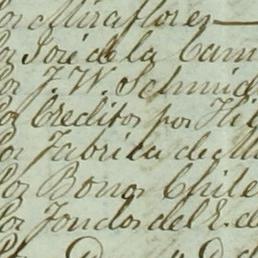 Por Miraflores
Por José de la Cam
Por J. W. Schmid
Por Creditos por Hi
Por Fabrica de
Por Bonos Chile
Por Fondos del E. de